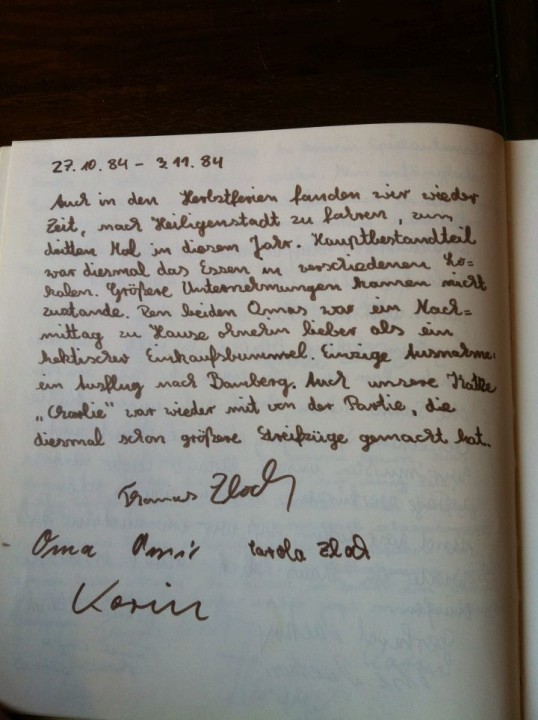 27.10.84 - 3.11.84
Auch in den Herbstferien fanden wir wieder
Zeit, nach Heiligenstadt zu fahren, zum
dritten Mal in diesem Jahr. Hauptbestandteil
war diesmal das Essen in verschiedenen Lo=
kalen. Größere Unternehmungen kamen nicht
zustande. Den beiden Omas war ein Nach=
mittag zu Hause ohnehin lieber als ein
hektischer Einkaufsbummel. Einzige Ausnahme:
ein Ausflug nach Bamberg. Auch unsere Katze
„Charlie" war wieder mit von der Partie, die
diesmal schon größere Streifzüge gemacht hat.
Thomas Zloch
Oma Carola Zloch
Karin